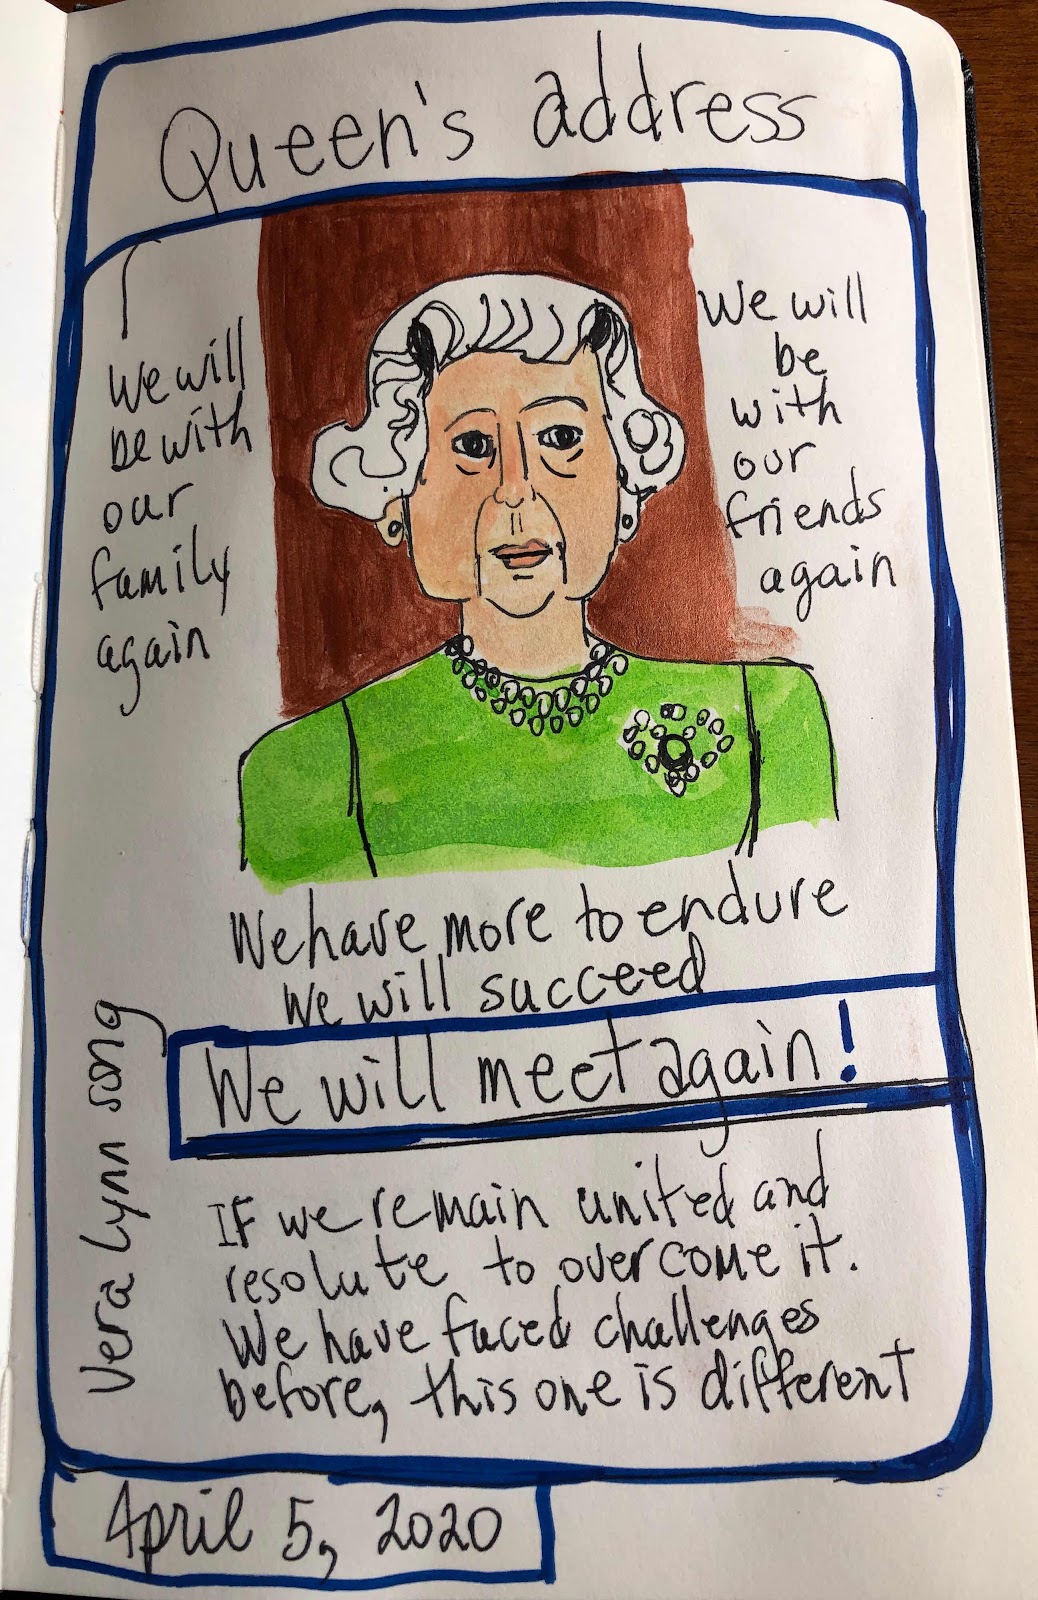 Queen's address
We will
be with
our
family
again
We will
be
with
our
friends
again
We have more to endure
We will succeed
We will meet again!
Vera Lynn song
IF we remain united and
resolute to overcome it.
We have faced challenges
before, this one is different
April 5, 2020